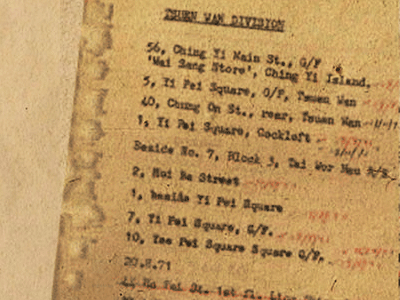 TSUEN WAN DIVISION
56, Ching Yi Main St., G/F
'Wai Sang Store', Ching Yi Island.
5, Yi Pei Square, G/F, Tsuen Wan
40, Chung On St., rear, Tsuen Wan
1, Yi Pei Square, Cockloft
Beside No. 7, Block 3, Tai Wor Hau
2, Hoi Ba Street
1, beside Yi Pei Square
7, Yi Pei Square, G/F.
10, Yee Pei Square Square G/F.
20.8.71
Ho Pei St. 1st fl.